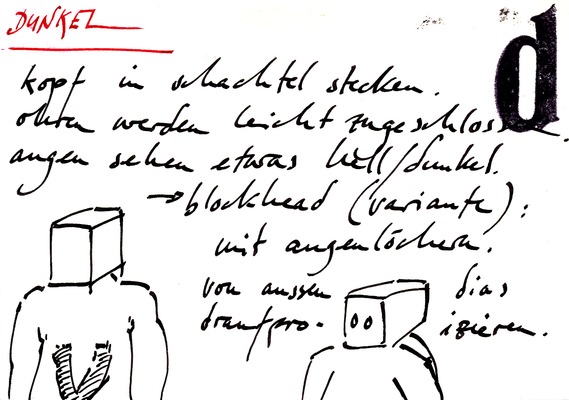 DUNKEL
d
kopf in schachtel stecken.
ohren werden leicht zugeschlossen.
augen sehen etwas hell/dunkel.
→ blockhead (variante):
mit augenlöchern.
von aussen dias
draufpro- izieren.